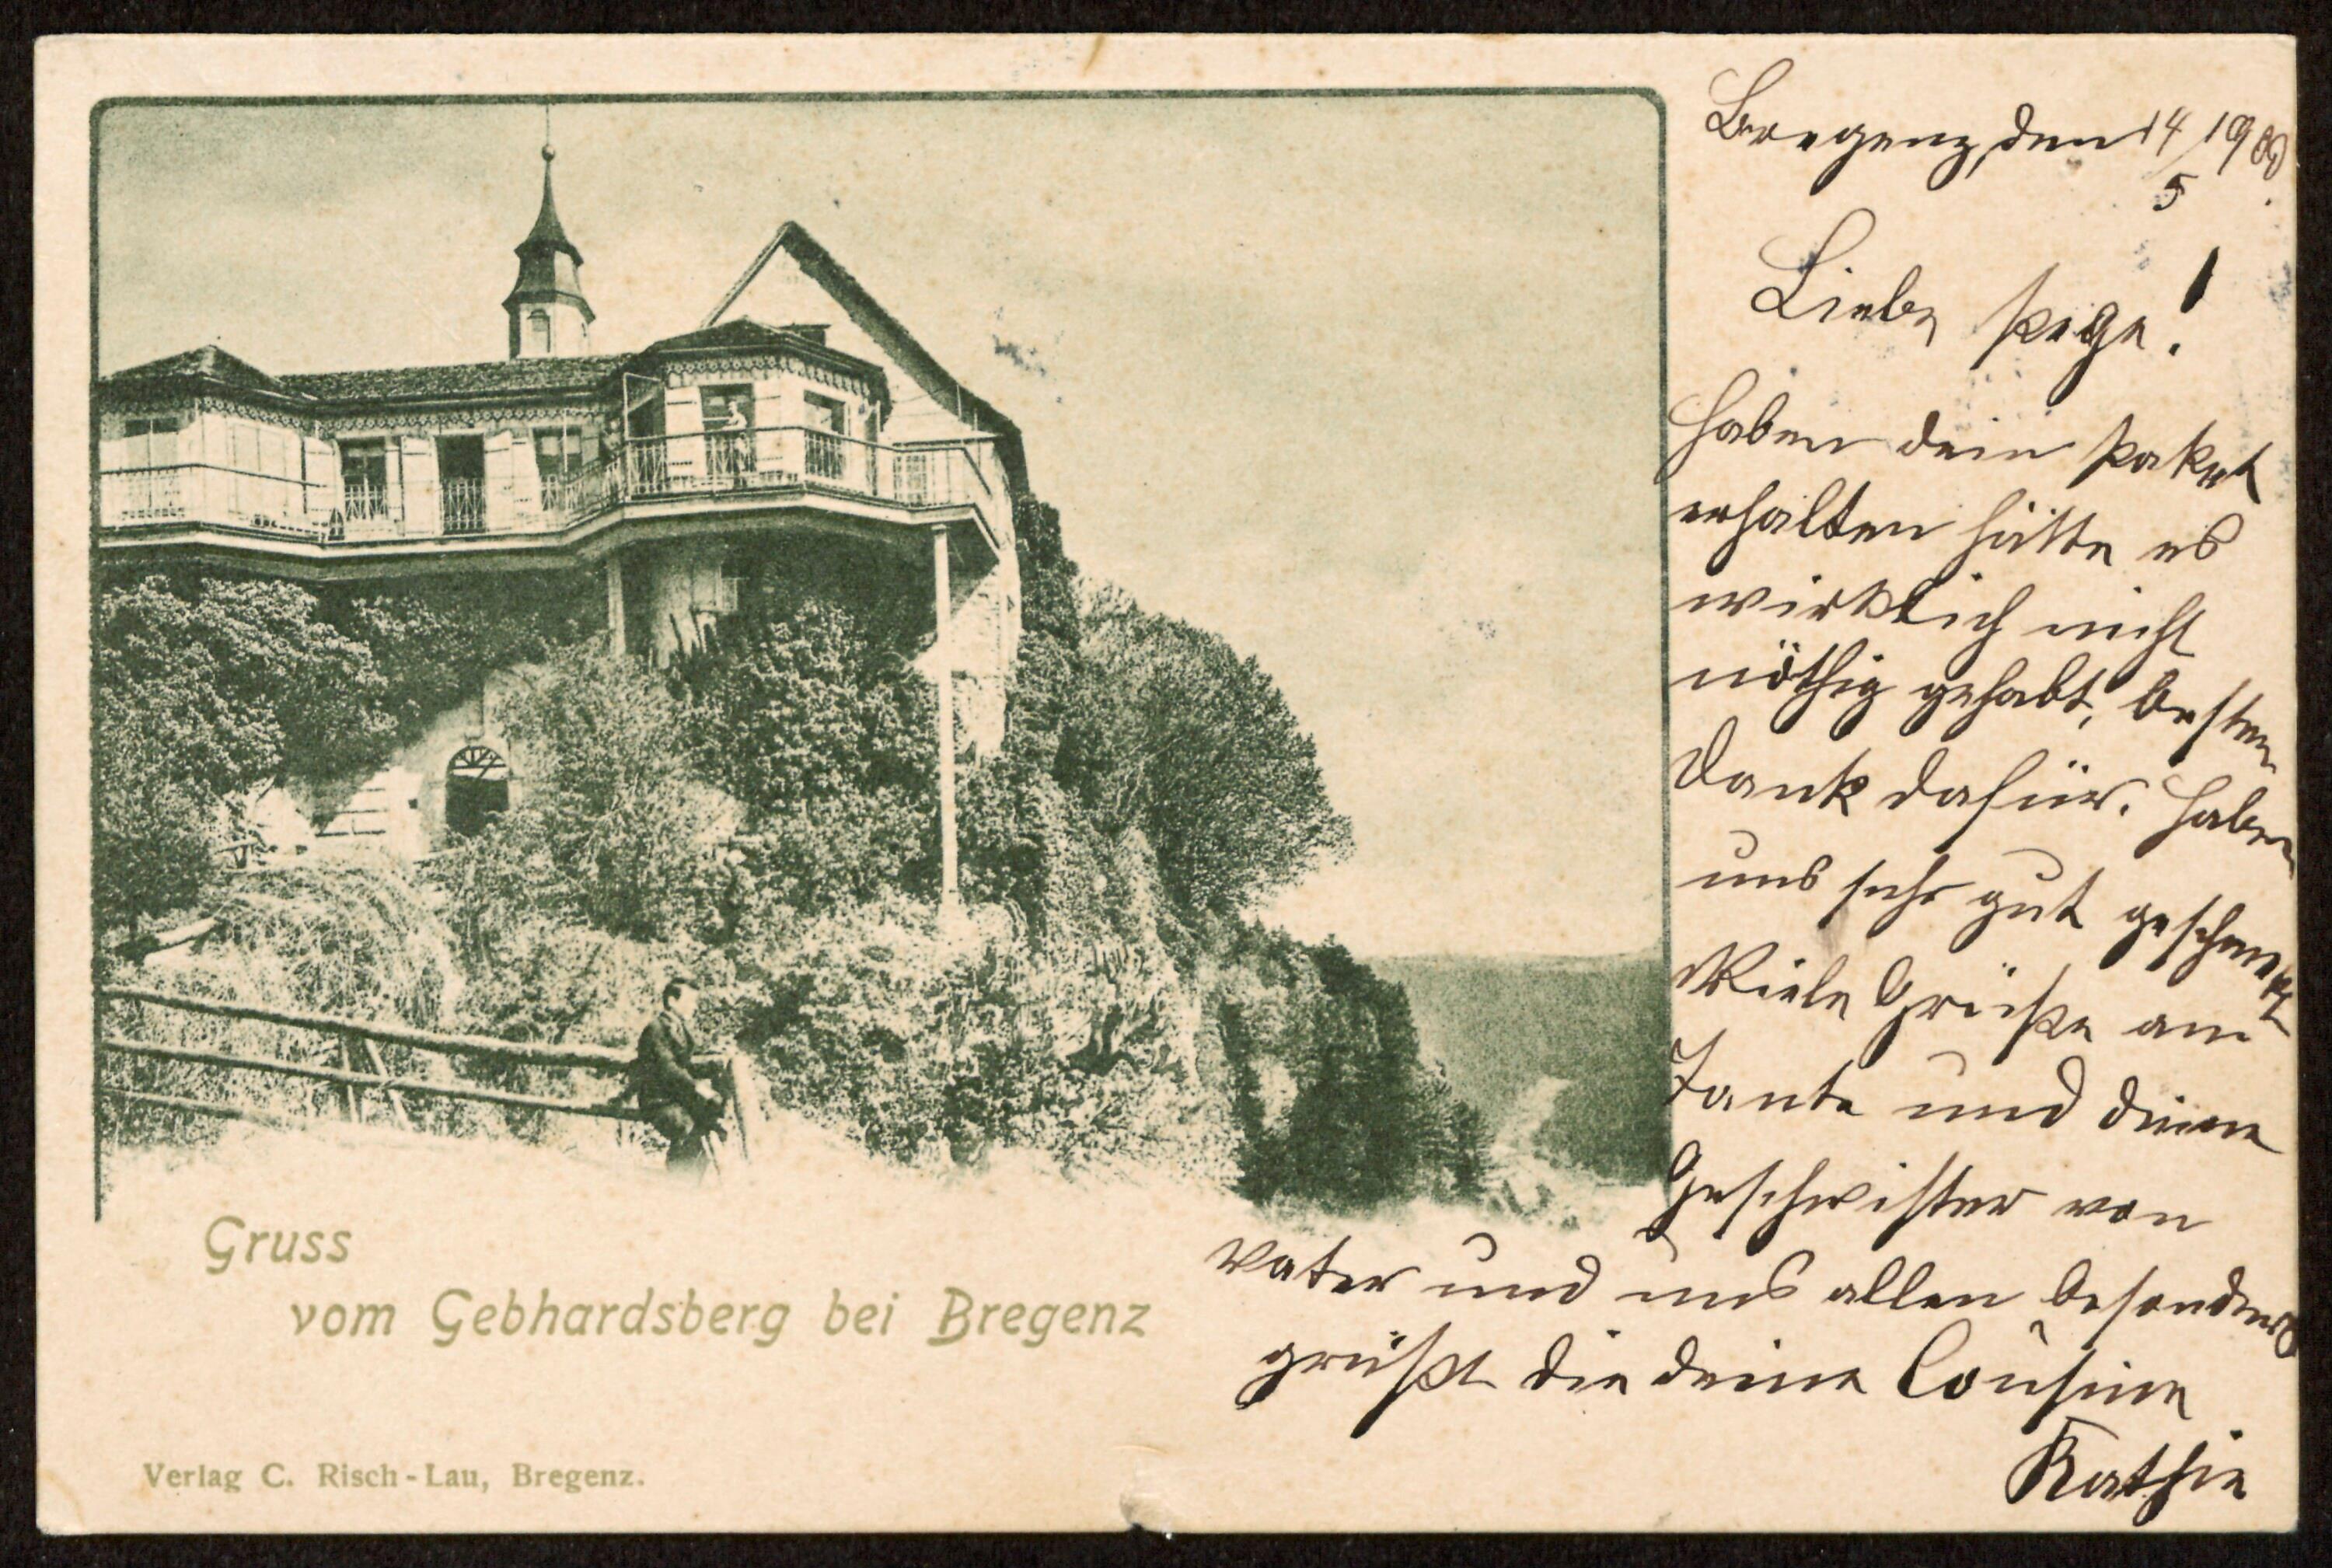 Bregenz, den 14/5 1900.
Liebe Pepe!
Haben dein Paket
erhalten hätte es
wirklich nicht
nöthig gehabt, besten
Dank dafür. Haben
uns sehr gut geschmekt
Viele Grüße an
Tante und deine
Geschwister von
Vater und uns allen besonders
grüßt die deine Cousine
Kathie
Gruss
vom Gebhardsberg bei Bregenz
Verlag C. Risch-Lau, Bregenz.